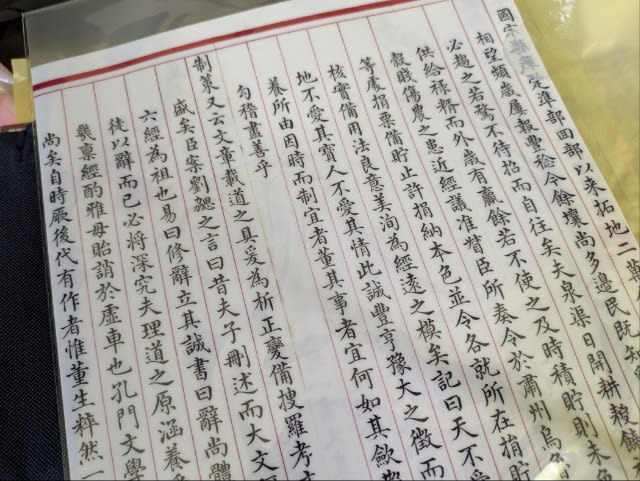 國家
定準部回部以來拓地二
相望頻歲屢報豐稔今餘壤尚多邊民既
必趨之若鶩不待招而自往矣夫泉渠日開耕耰
供給祿糈而外歲有贏餘若不使之及時積貯則未
穀賤傷農之患近經議准督臣所奏令於肅州烏魯
等處捐監備貯止許捐納本色並令各就所在捐貯
核實備用法良意美洵為經遠之模矣記曰天不愛
地不愛其寶人不愛其情此誠豐亨豫大之徵而
養所由因時而制宜者董其事者宜何如其歛
勾稽盡善乎
制策又云文軍載道之具爰為析正變備搜羅考
盛矣臣案劉勰之言曰昔夫子刪述而大文
六經為祖也易曰修辭立其誠書曰辭尚體
徒以辭而已必將深究夫理道之原涵養
幾稟經酌雅毋貽誚於虛車也孔門文學
尚矣自時厥後代有作者惟董生粹然一